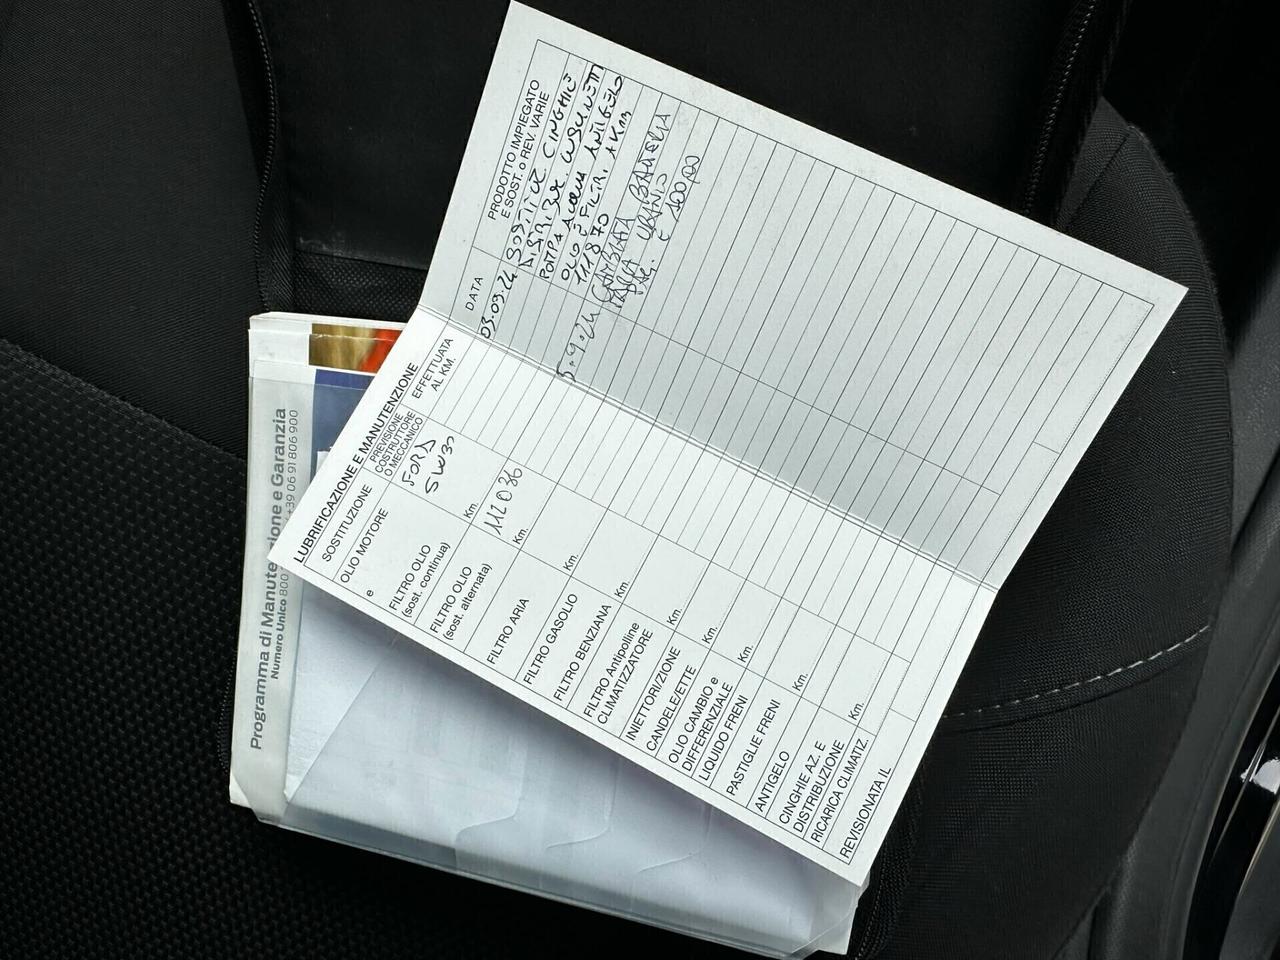 LUBRIFICAZIONE E MANUTENZIONE
SOSTITUZIONE
PREVISIONE
COSTRUTTORE
O MECCANICO
EFFETTUATA
AL KM.
DATA
PRODOTTO IMPIEGATO
E SOST. O REV. VARIE
OLIO MOTORE
e
FORD
5W30
03.09.24 SOSTITUZ CINGHIE
DISTRIBUZ.
POMPA ACQUA
OLIO E FILTRI ANTIGELO
111870 A KM
FILTRO OLIO
(sost. continua)
Km.
FILTRO OLIO
(sost. alternata)
112036
Km.
5.9.24 CAMBIATA BATTERIA
URANIO
PAG. € 100,00
FILTRO ARIA
Km.
FILTRO GASOLIO
FILTRO BENZIANA
Km.
FILTRO Antipolline
CLIMATIZZATORE
Km.
INIETTORI/ZIONE
CANDELE/ETTE
Km.
OLIO CAMBIO e
DIFFERENZIALE
LIQUIDO FRENI
Km.
PASTIGLIE FRENI
ANTIGELO
Km.
CINGHIE AZ. E
DISTRIBUZIONE
RICARICA CLIMATIZ.
Km.
REVISIONATA IL
Programma di Manutenzione e Garanzia
Numero Unico 800
+39 06 91 806 900